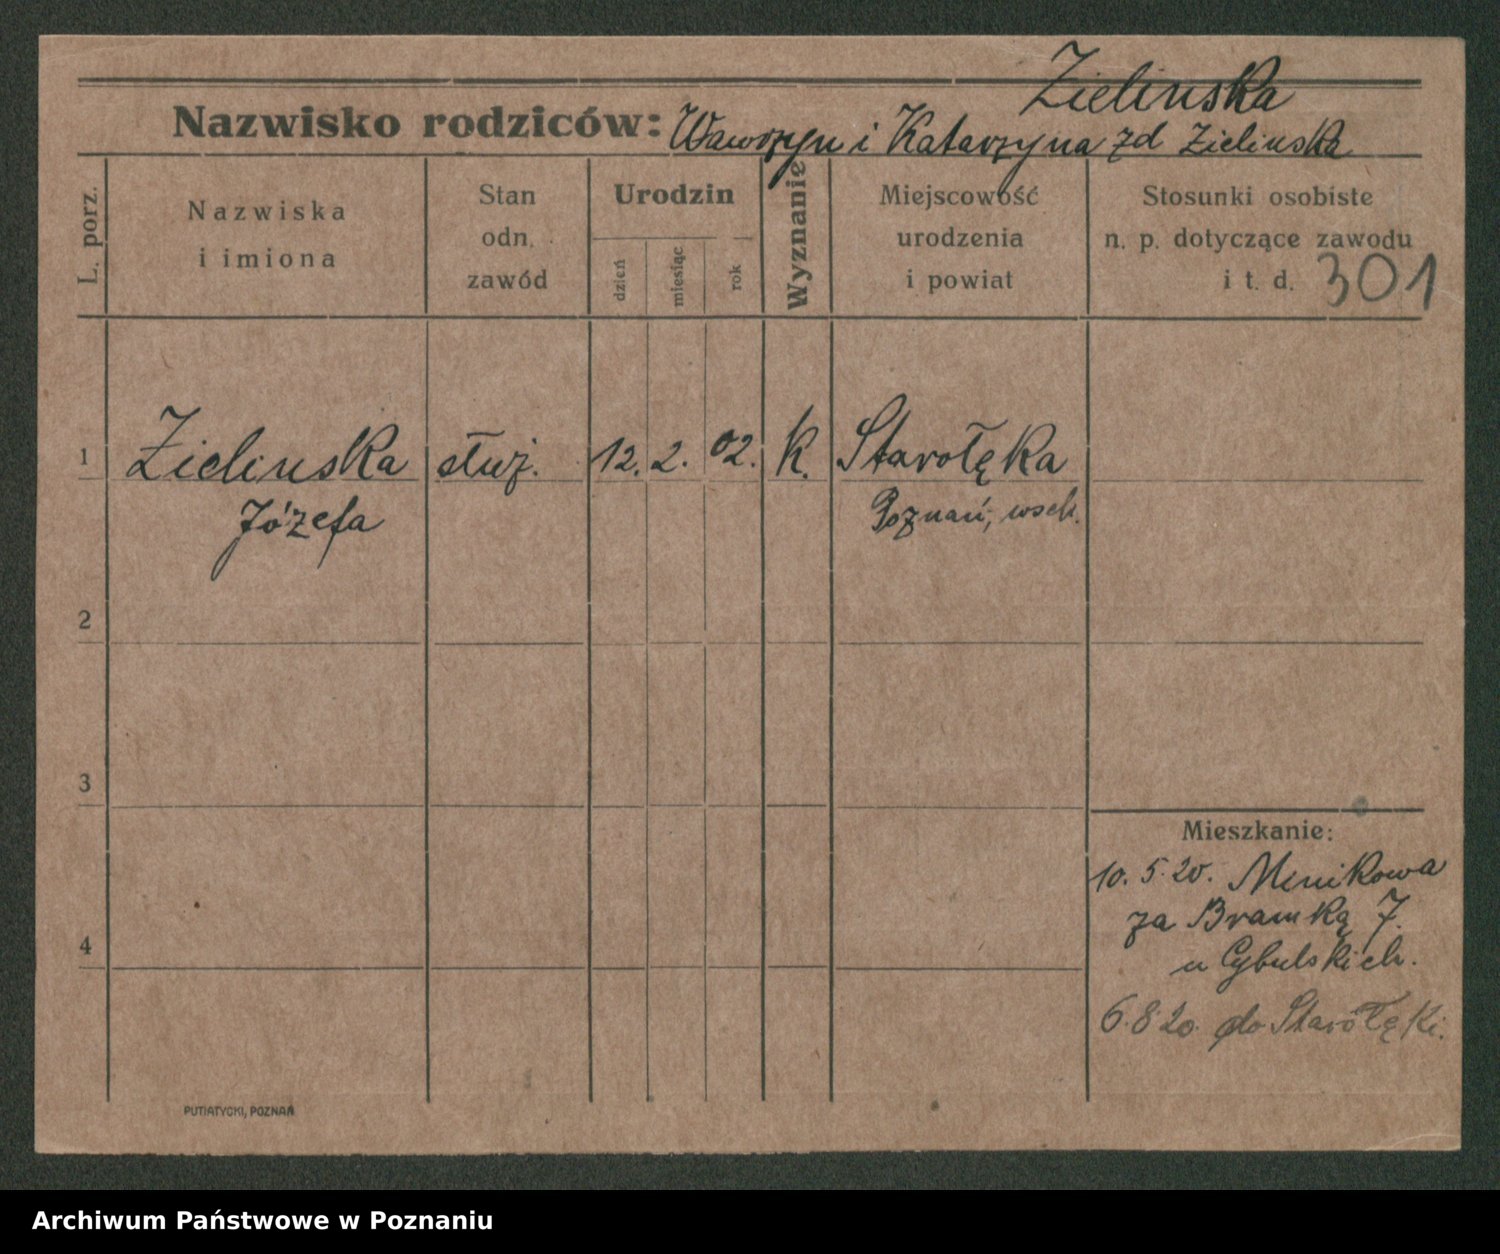 Zielinska
Nazwisko rodziców: Wawrzyn i Katarzyna zd Zielinska
L. porz.
Nazwiska i imiona
Stan odn. zawód
Urodzin
dzień
miesiąc
rok
Wyznanie
Miejscowość urodzenia i powiat
Stosunki osobiste n. p. dotyczące zawodu i t. d.
301
1 Zielinska służ. 12. 2. 02. k. Starołęka
Józefa Poznań, wsch.
2
3
4
Mieszkanie:
10. 5. 20.
za Bramką 7.
u Cybulskich.
6. 8. 20. do Starołęki.
PUTIATYCKI, POZNAŃ
Archiwum Państwowe w Poznaniu